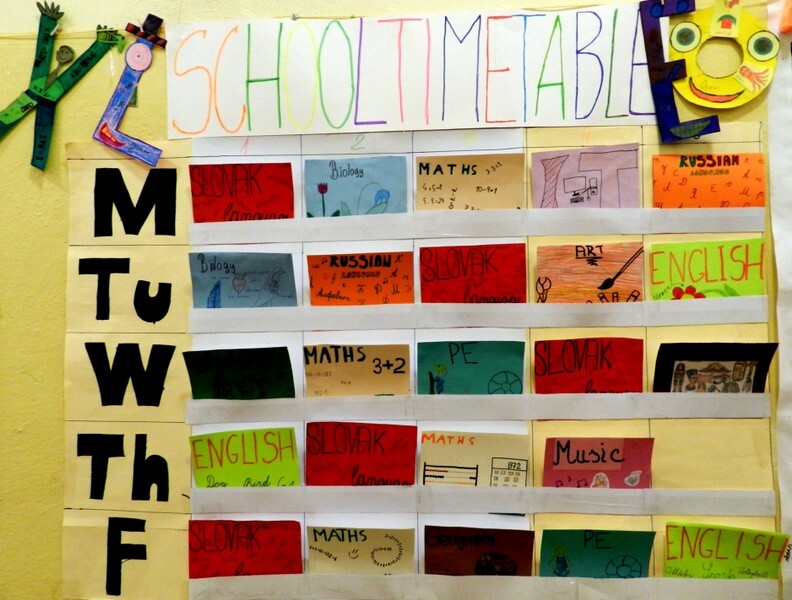 SCHOOLTIMETABLE
1 2 4
M SLOVAK language Biology MATHS IT RUSSIAN LANGUAGE
Tu Biology RUSSIAN LANGUAGE SLOVAK language ART ENGLISH
W MATHS 3+2 PE SLOVAK
Th ENGLISH Dog Bird SLOVAK language MATHS Music
F SLOVAK MATHS Geography PE ENGLISH